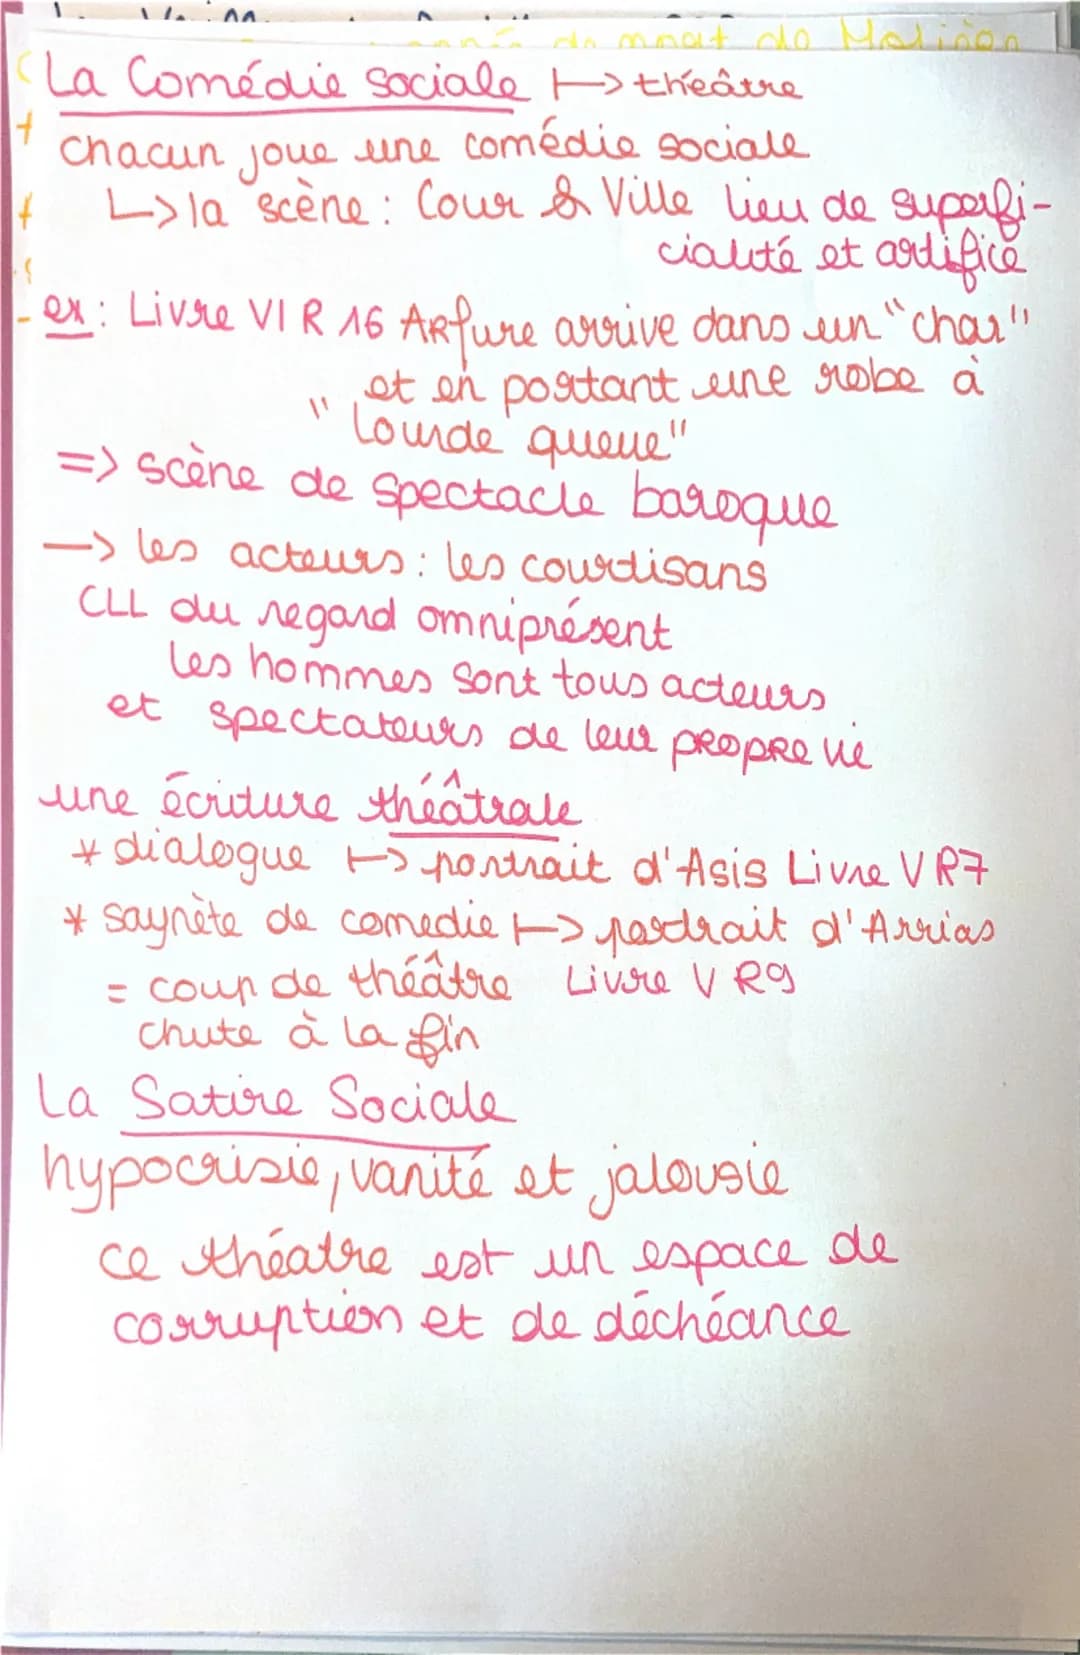 de mort de Molière
La Comédie Sociale |-> théâtre
chacun joue une comédie sociale
↳ la scène : Cour & Ville lieu de superfi-
cialité et artifice
ex : Livre VI R 16 Arfure arrive dans un "char"
et en portant une robe à
"lourde queue"
=> scène de spectacle baroque
-> les acteurs : les courtisans
CLL du regard omniprésent
les hommes sont tous acteurs
et spectateurs de leur propre vie
une écriture théâtrale
* dialogue |-> portrait d'Asis Livre V R7
* saynète de comedie |-> portrait d'Arrias
= coup de théâtre Livre V R9
chute à la fin
La Satire Sociale
hypocrisie, vanité et jalousie
ce théatre est un espace de
corruption et de déchéance